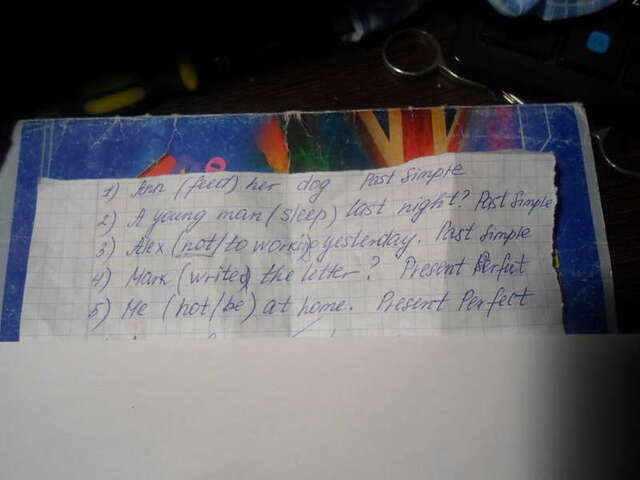 1) Ann (feed) her dog Past Simple
2) A young man (sleep) last night? Past Simple
3) Alex (not/to work) yesterday. Past Simple
4) Mark (write) the letter? Present Perfect
5) Me (not/be) at home. Present Perfect